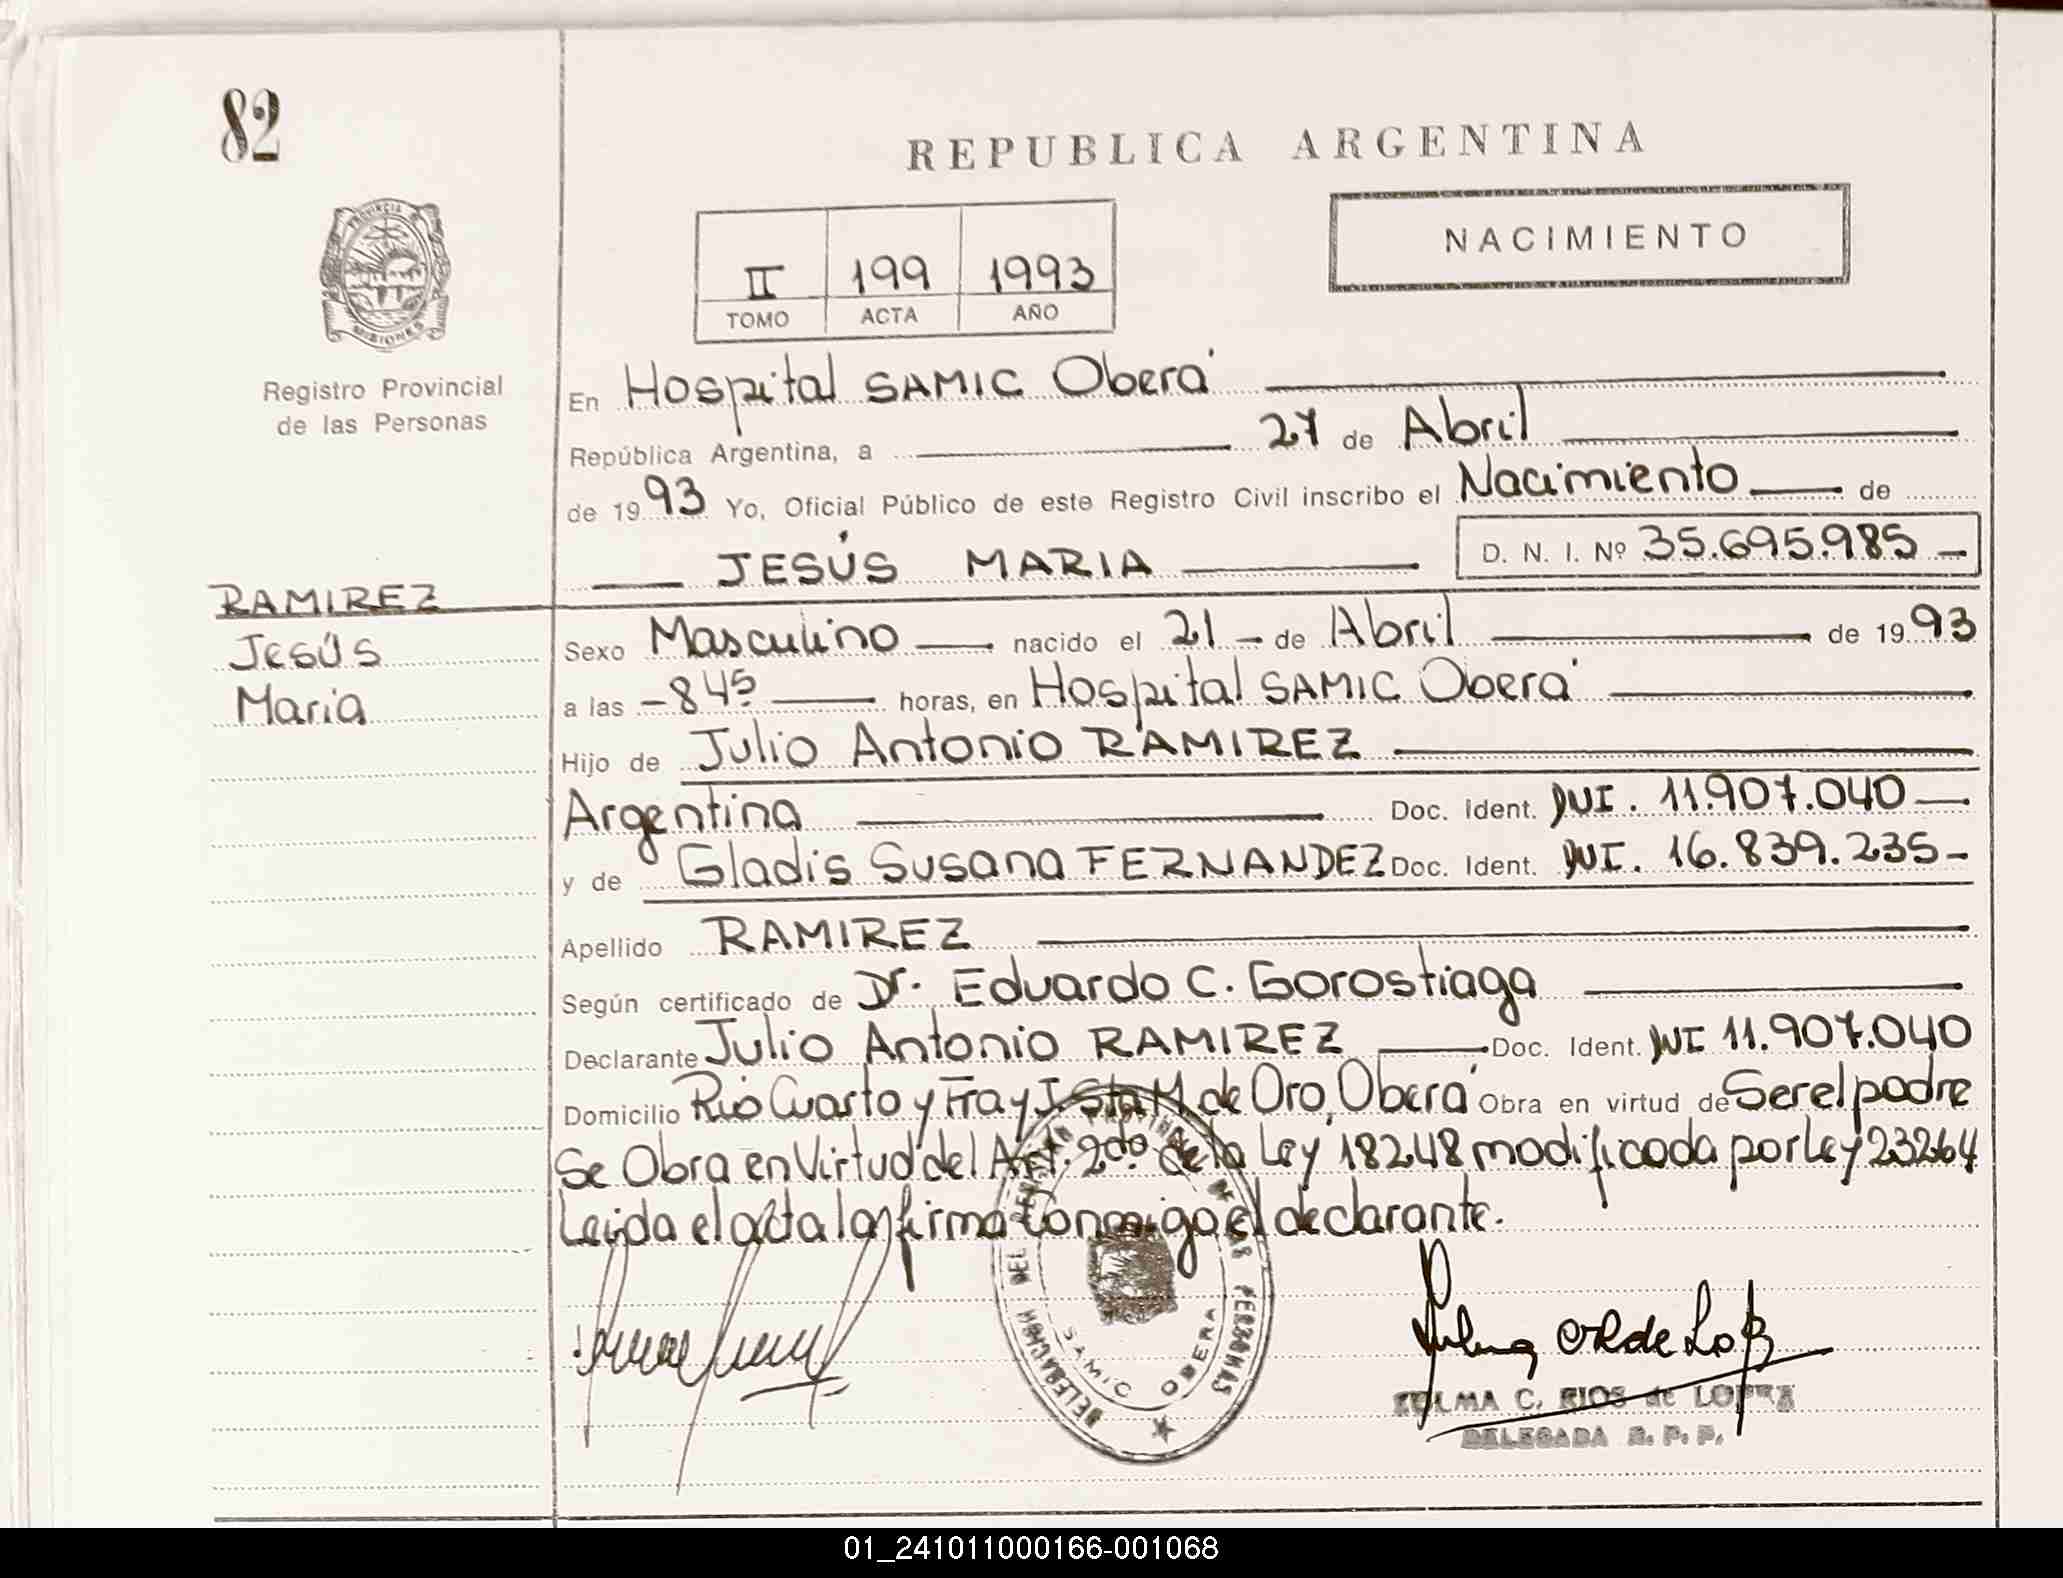 82
REPUBLICA ARGENTINA
NACIMIENTO
II 199 1993
TOMO ACTA AÑO
PROVINCIA
MISIONES
Registro Provincial
de las Personas
En Hospital SAMIC Oberá
República Argentina, a 27 de Abril
de 1993 Yo, Oficial Público de este Registro Civil inscribo el Nacimiento de
JESÚS MARIA D. N. I. Nº 35.695.985
RAMIREZ
Jesús
Maria
Sexo Masculino nacido el 21 de Abril de 1993
a las 8 45 horas, en Hospital SAMIC Oberá
Hijo de Julio Antonio RAMIREZ
Argentina Doc. Ident. DNI. 11.907.040
y de Gladis Susana FERNANDEZ Doc. Ident. DNI. 16.839.235
Apellido RAMIREZ
Según certificado de Dr. Eduardo C. Gorostiaga
Declarante Julio Antonio RAMIREZ Doc. Ident. DNI 11.907.040
Domicilio Rio Cuarto y Fray J. Sta M. de Oro, Oberá Obra en virtud de Ser el padre
Se Obra en Virtud del Art. 2do. de la Ley 18248 modificada por Ley 23264
Leida el acta la firma conmigo el declarante.
SAMIC OBERA
ZULMA C. RIOS de LOPEZ
DELEGADA R. P. P.
01_241011000166-001068